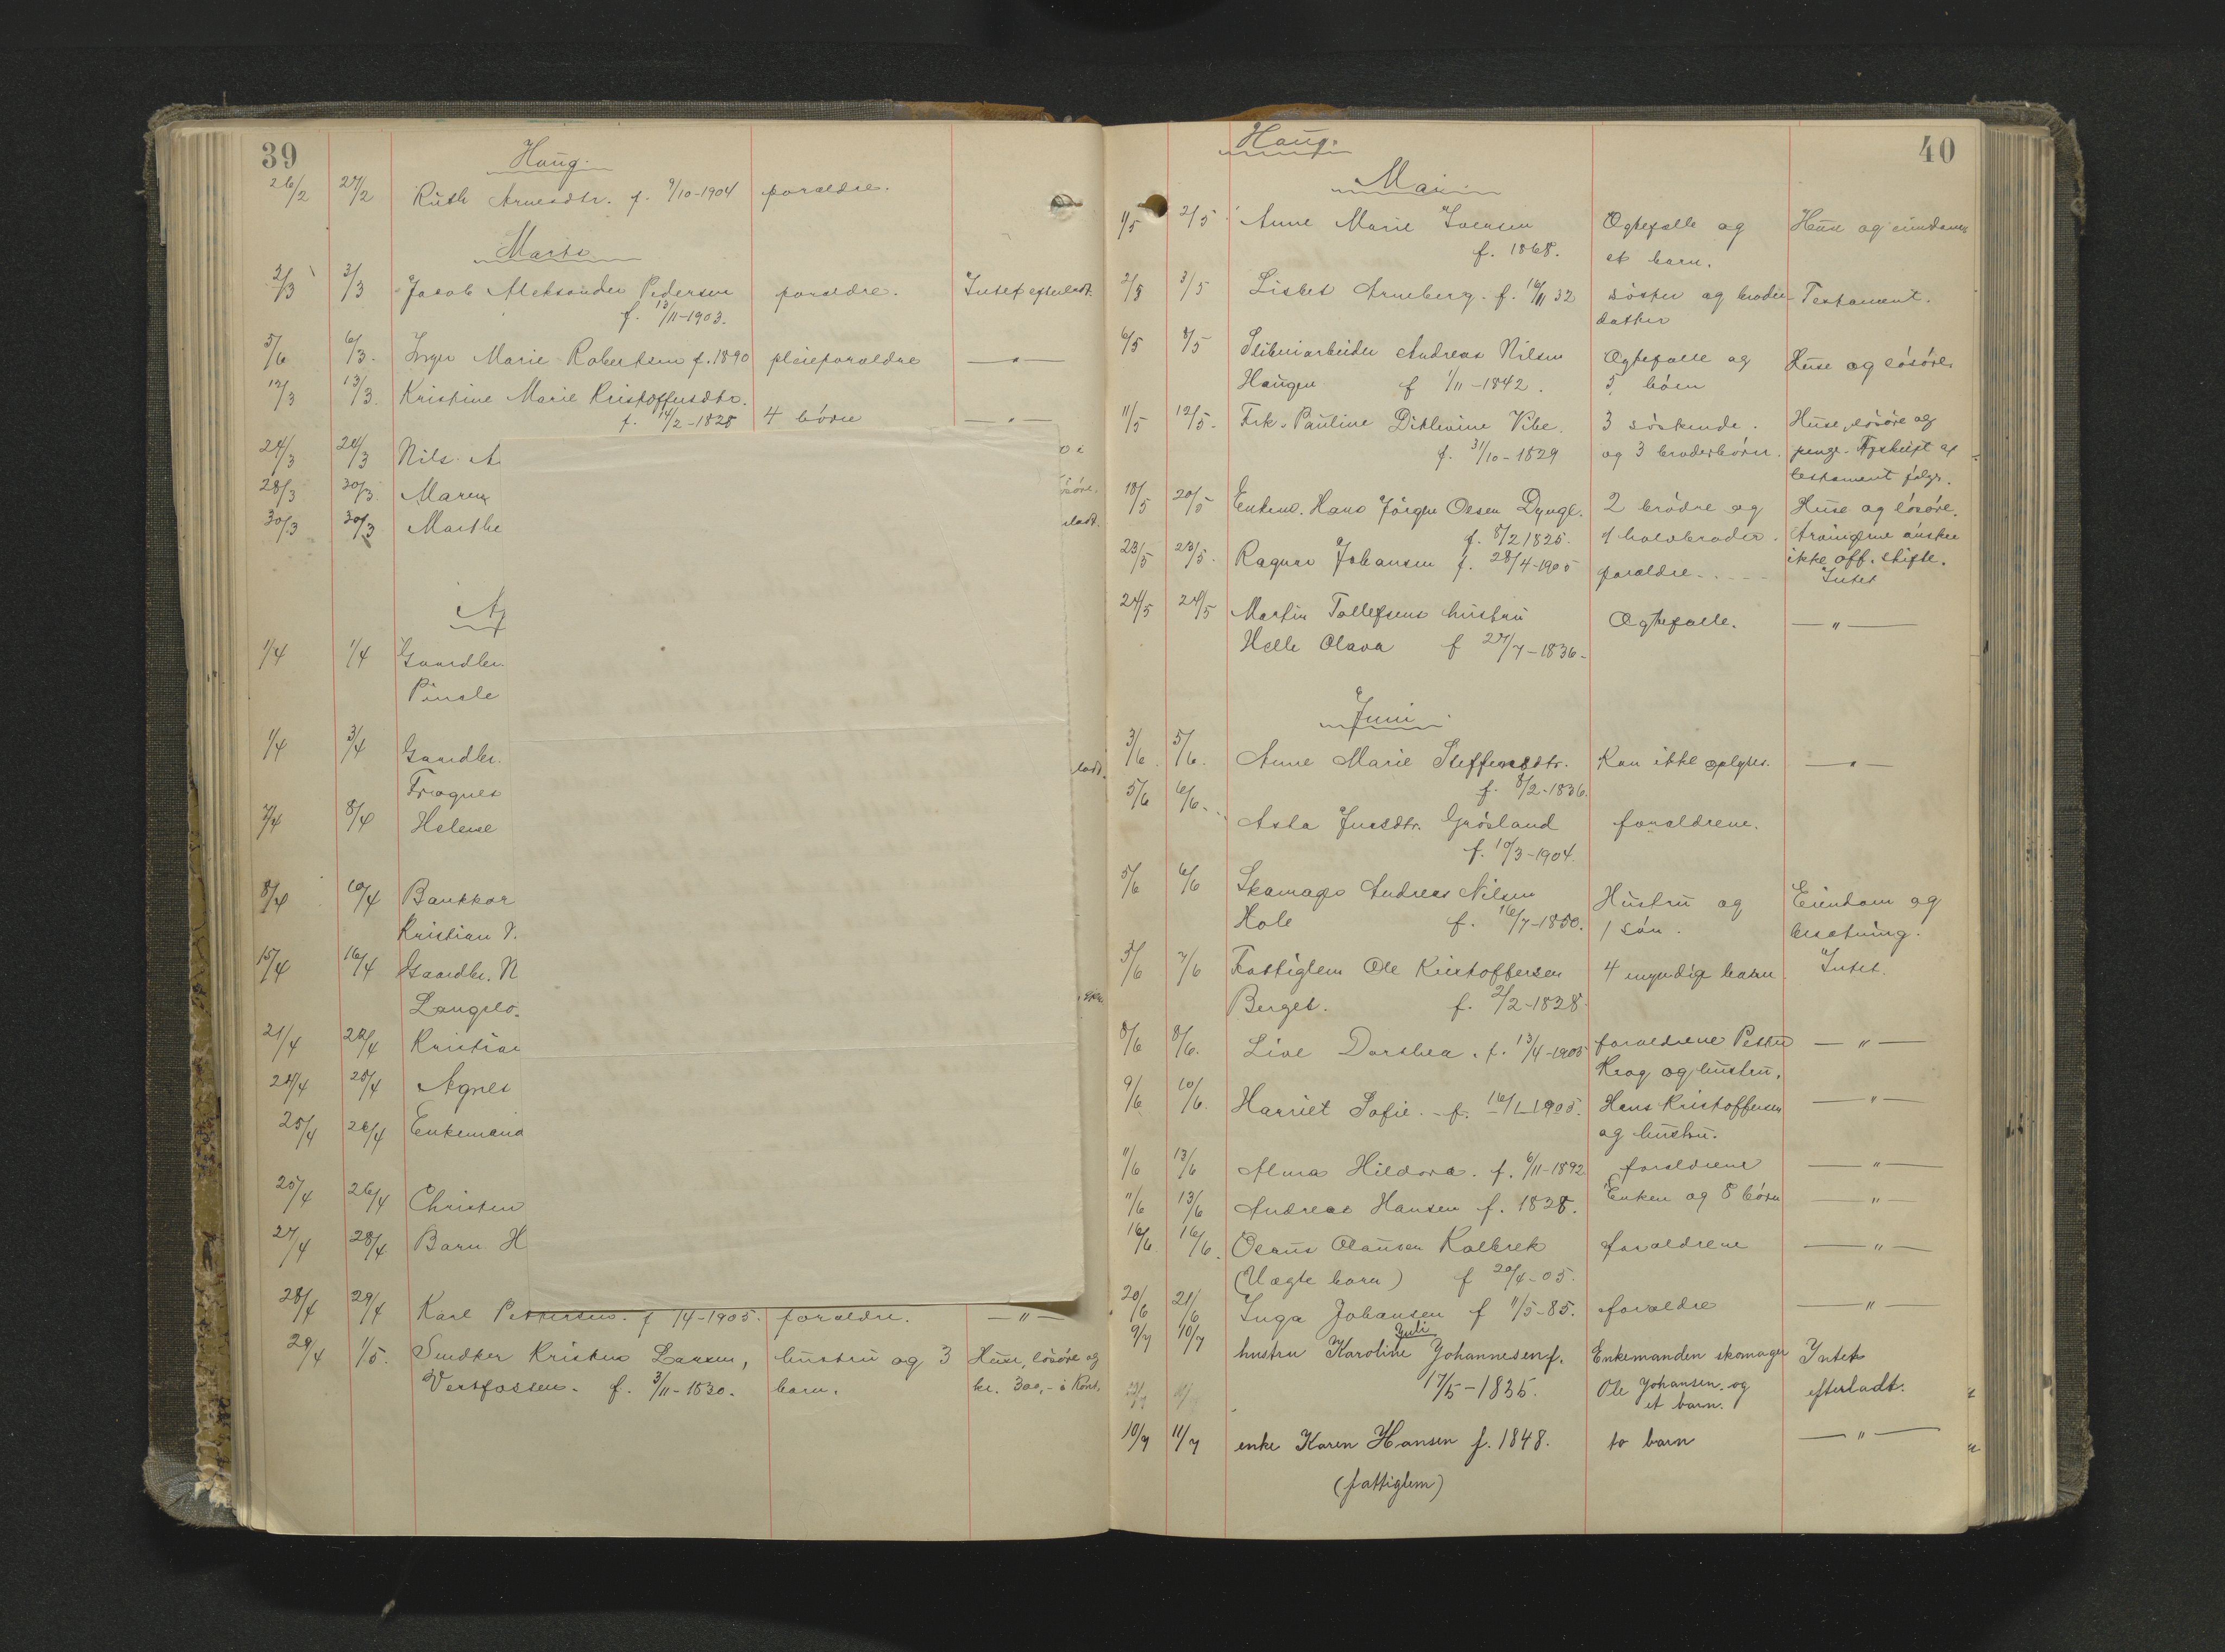 39
Haug.
26/2 27/2 Ruth Arnesdtr. f. 9/10-1904 foraldre.
Marts
2/3 3/3 Jacob Aleksander Pedersen foraldre. Intet efterladt.
f. 13/11-1903.
5/6 6/3. Inger Marie Robertsen f. 1890 pleieforaldre — " —
12/3 13/3. Kristine Marie Kristoffersdtr.
f. 14/2-1828 4 börn — " —
24/3 24/3 Nils A
28/3 30/3. Maren
30/3 30/3 Marthe
ladt.
A
1/4 1/4 Gaardbr.
1/4 3/4 Gaardbr.
ladt.
7/4 8/4 Helene
8/4 10/4 Bankkor
Kristian
15/4 16/4 Gaardbr. N
Langelo.
21/4 22/4 Kristia
24/4 25/4 Agnes
25/4 26/4 Enkemand
25/4 26/4 Christen
27/4 28/4 Barn H
28/4 29/4 Karl Pettersen. f /4-1905. foraldre. — " —
29/4 1/5. Kristen Larsen, hustru og 3 Huse, lösöre og
Verkfossen. f. 3/11-1830. barn. kr. 300,- i Kont.
40
Haug.
Mai
1/5 2/5 Anne Marie Iversen Ogtefalle og Huse og eiendom
f. 1868. et barn.
2/5 3/5 Lisbet Arneberg. f. 16/11 32 söster og broder- Testament.
datter
6/5 8/5 Sliberiarbeider Andreas Nilsen Ogtefalle og Huse og lösöre
Haugen f 1/11-1842. 5 börn
11/5 12/5. Frk. Pauline Ditlevine Vibe. 3 söskende. Huse, lösöre og
f. 31/10-1829 og 3 broderbörn. penge. Afskrift af
testament fölger.
18/5 20/5 Enkem. Hans Jörgen Olsen Dynge. 2 brödre og Huse og lösöre.
f. 8/2 1825. 1 halvbroder. Arvingerne önsker
23/5 23/5. Ragnar Johansen f. 28/4-1905 foraldre. ikke off. skifte.
Intet
24/5 24/5 Martin Tollefsens hustru Ogtefalle. — " —
Helle Olava f 27/7-1836.
Juni
3/6. 5/6. Anne Marie Steffensdtr. Kan ikke oplyses. — " —
f. 8/2-1836.
5/6 6/6. Asta Jensdtr. Grösland foraldrene.
f. 10/3-1904.
5/6 6/6 Skomager Andreas Nilsen Hustru og Eiendom og
Hole f. 16/7-1850. 1 sön. besatning.
5/6 7/6 Fattiglem Ole Kristoffersen 4 myndige barn. Intet.
Berget. f. 2/2-1828.
8/6 8/6. Live Dorthea. f. 13/4-1905 foraldrene Petter — " —
Krog og hustru.
9/6 10/6. Harriet Sofie. f. 16/1-1905. Hans Kristoffersen — " —
og hustru.
11/6 13/6 Alma Hildora. f. 6/11-1892 foraldrene — " —
11/6 13/6 Andreas Hansen f. 1828. Enken og 8 börn — " —
16/6 16/6. Olaus Olausen Kolbrek foraldrene — " —
(Uægte barn) f 20/4-05.
20/6 21/6 Inga Johansen f 11/5-85. foraldre — " —
Juli
9/7 10/7 hustru Karoline Johannesen f. Enkemanden skomager Intet
17/5-1835. Ole Johansen og efterladt.
et barn.
10/7 11/7 enke Karen Hansen f. 1848. to barn — " —
(fattiglem)